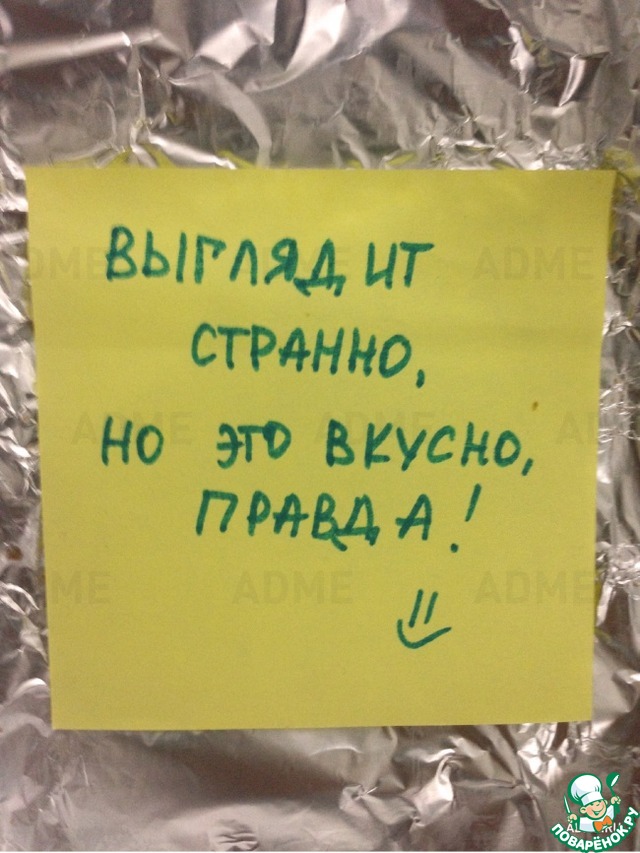 ВЫГЛЯДИТ
СТРАННО,
НО ЭТО ВКУСНО,
ПРАВДА!
ADME
ADME
ADME
ADME
ADME
ADME
ПОВАРЁНОК.РУ